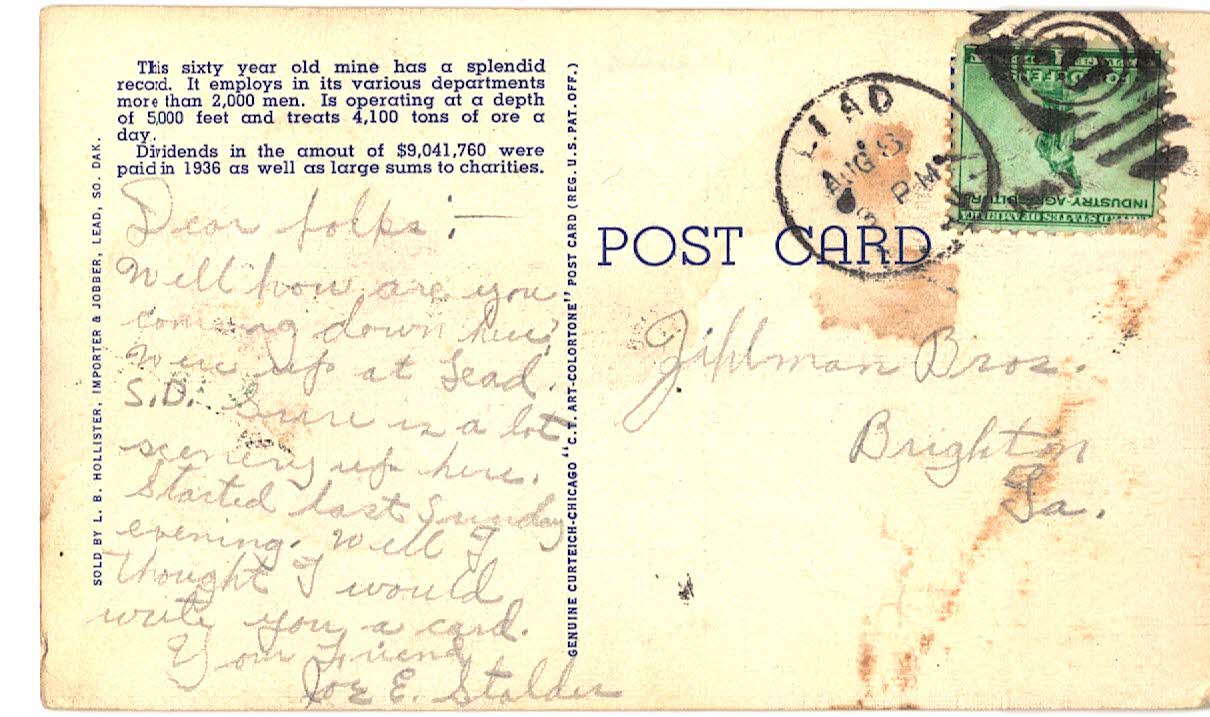 This sixty year old mine has a splendid
record. It employs in its various departments
more than 2,000 men. Is operating at a depth
of 5,000 feet and treats 4,100 tons of ore a
day.
Dividends in the amout of $9,041,760 were
paid in 1936 as well as large sums to charities.
Dear folks:—
Well how are you
coming down here?
Were up at Lead.
S.D. Sure is a lot
scenery up here.
Started last Sunday
evening. Well I
thought I would
write you a card.
Your Friend
Joe E. Stalder
SOLD BY L. B. HOLLISTER, IMPORTER & JOBBER, LEAD, SO. DAK.
GENUINE CURTEICH-CHICAGO "C.T. ART-COLORTONE" POST CARD (REG. U.S. PAT. OFF.)
POST CARD
LEAD
AUG 13
PM
FOR DEFENSE
INDUSTRY-AGRICULTURE
UNITED STATES OF AMERICA
Zihlman Bros.
Brighton
Ia.